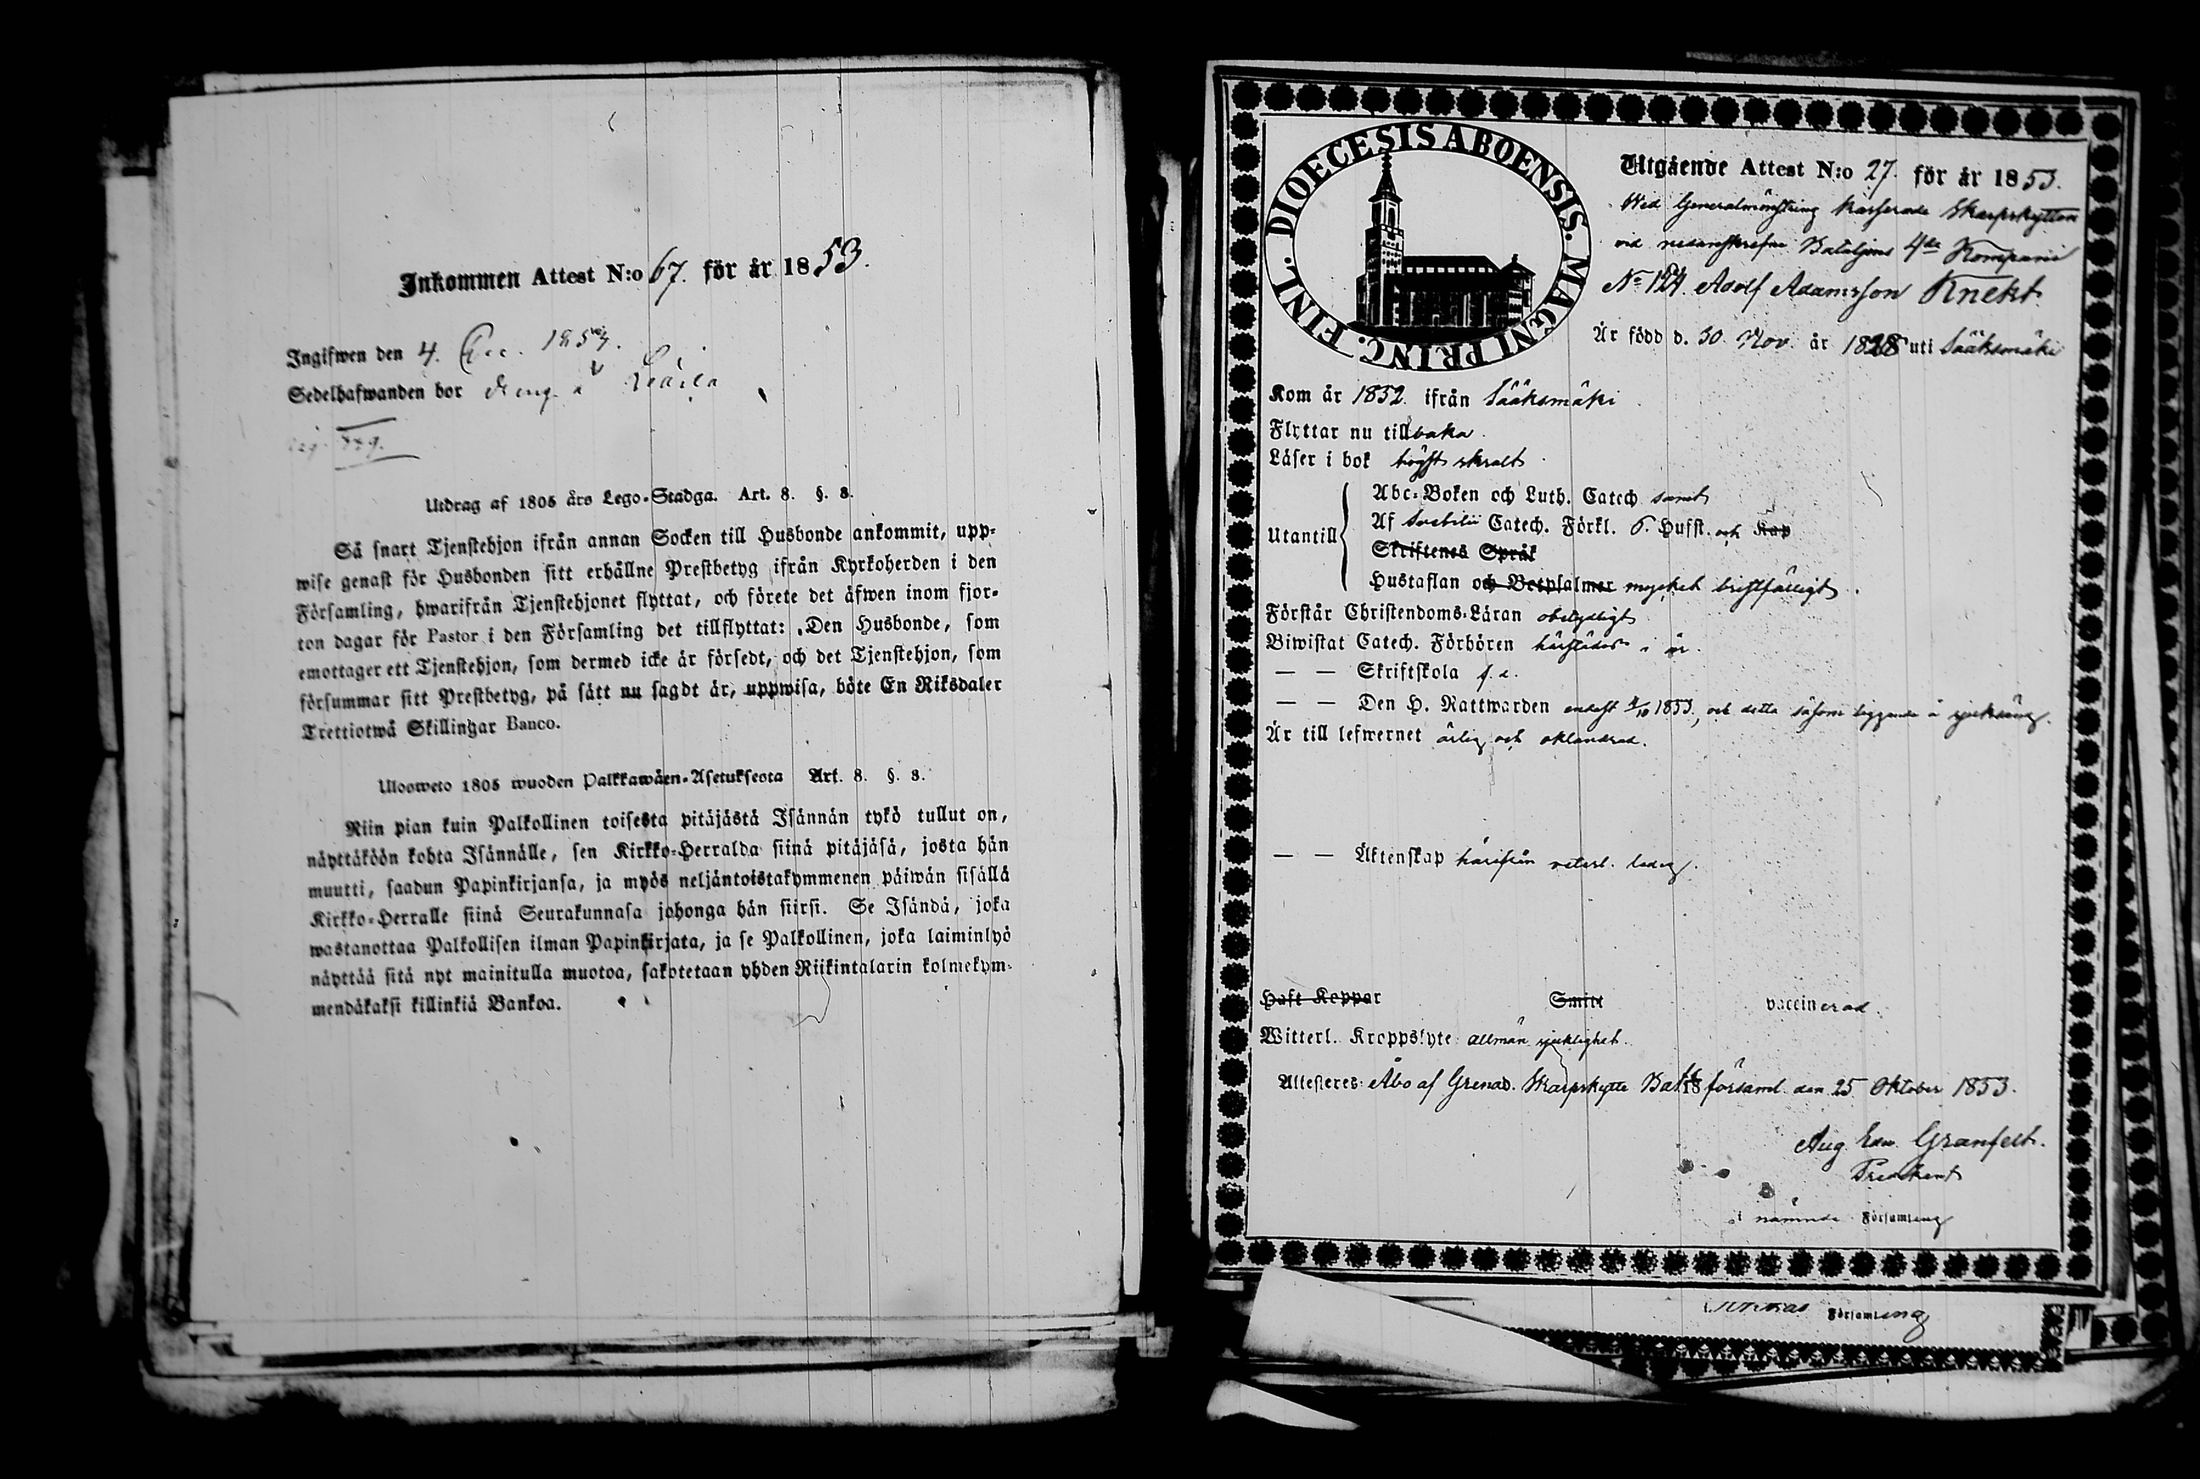 Inkommen Attest N:o 67. för år 1853.
Ingifwen den 4. Dec. 1853.
Sedelhafwanden bor dreng
Utdrag af 1805 års Lego-Stadga. Art. 8. §. 8.
Så snart Tjenstehjon ifrån annan Socken till Husbonde ankommit, upp-
wise genast för Husbonden sitt erhållne Prestbetyg ifrån Kyrkoherden i den
Församling, hwarifrån Tjenstehjonet flyttat, och förete det äfwen inom fjor-
ton dagar för Pastor i den Församling det tillflyttat: Den Husbonde, som
emottager ett Tjenstehjon, som dermed icke är försedt, och det Tjenstehjon, som
försummar sitt Prestbetyg, på sätt nu sagdt är, uppwisa, böte En Riksdaler
Trettiotwå Skillingar Banco.
Ulosweto 1805 wuoden Palkkawäen-Asetuksesta Art. 8. §. 8.
Niin pian kuin Palkollinen toisesta pitäjästä Isännän tykö tullut on,
näyttäköön kohta Isännälle, sen Kirkko-Herralda siinä pitäjäsä, josta hän
muutti, saadun Papinkirjansa, ja myös neljäntoistakymmenen päiwän sisällä
Kirkko-Herralle siinä Seurakunnasa johonga hän siirsi. Se Isändä, joka
wastanottaa Palkollisen ilman Papinkirjata, ja se Palkollinen, joka laiminlyö
näyttää sitä nyt mainitulla muotoa, sakotetaan yhden Riikintalarin kolmekym-
mendäkaksi killinkiä Bankoa.
DIOECESIS ABOENSIS. MAGNI PRINC. FINL.
Utgående Attest N:o 27. för år 1853.
Wid Generalmönstring kasserade Skarpskytten
vid nedanskrefne Bataljons 4de Kompanie
No 124. Adolf Adamsson Knekt.
Är född d. 30 Nov. år 1828 uti Sääksmäki
Kom år 1852. ifrån Sääksmäki
Flyttar nu tillbaka.
Läser i bok högst skralt
Utantill
Abc-Boken och Luth. Catech. samt
Af Svebelii Catech. Förkl. 6. Hufst. och Kap
Skriftenes Språk
Hustaflan och Botpsalmer mycket bristfälligt.
Förstår Christendoms-Läran obetydligt
Biwistat Catech. Förhören härstädes i år.
— — Skriftskola
— — Den H. Nattwarden endast 4/10 1853, och detta såsom liggande å sjuksäng.
Är till lefwernet ärlig och oklandrad.
— — Äktenskap härifrån veterl. ledig.
Haft Koppor Smitt vaccinerad.
Witterl. Kroppslyte allmän sjuklighet.
Attesteres Åbo af Grenad. Skarpskytte Bat:s församl. den 25 Oktober 1853.
Aug. Edv. Granfelt.
Predikant
i nämnde Församling
Församling